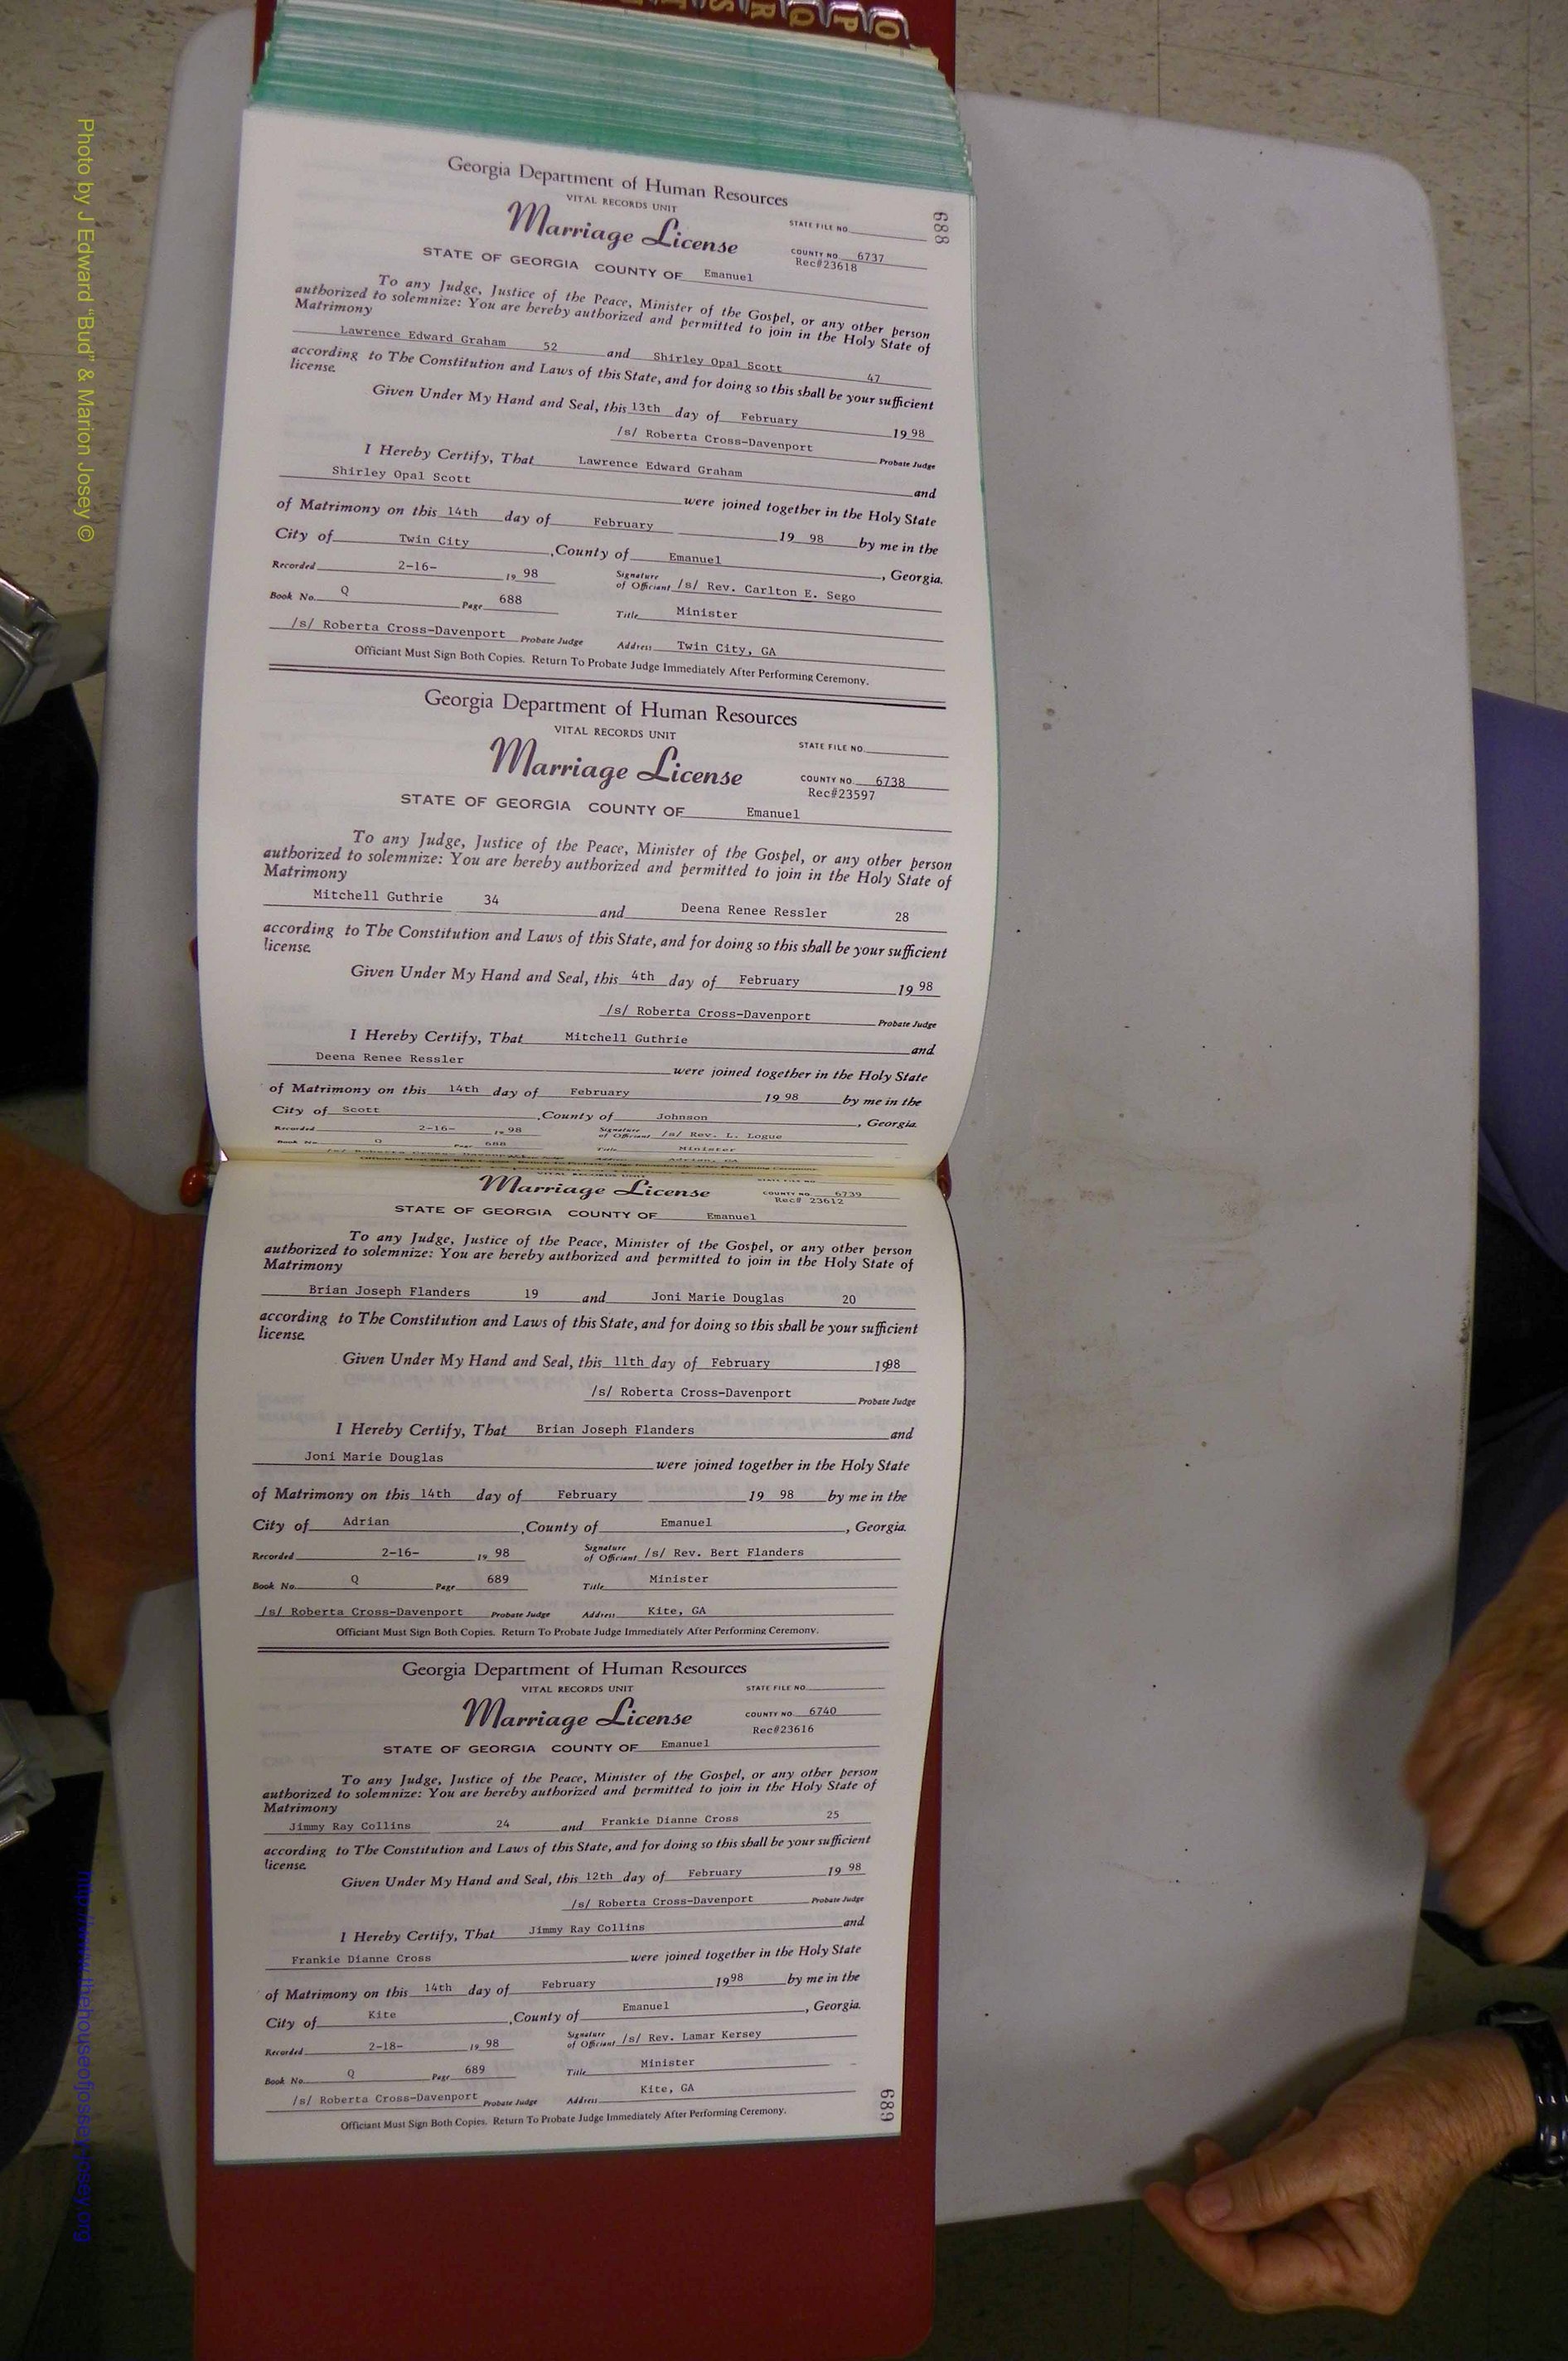 O P Q R S
Georgia Department of Human Resources
VITAL RECORDS UNIT
Marriage License
STATE FILE NO.
688
COUNTY NO. 6737
Rec#23618
STATE OF GEORGIA COUNTY OF Emanuel
To any Judge, Justice of the Peace, Minister of the Gospel, or any other person
authorized to solemnize: You are hereby authorized and permitted to join in the Holy State of
Matrimony
Lawrence Edward Graham 52 and Shirley Opal Scott 47
according to The Constitution and Laws of this State, and for doing so this shall be your sufficient
license.
Given Under My Hand and Seal, this 13th day of February 1998
/s/ Roberta Cross-Davenport
Probate Judge
I Hereby Certify, That Lawrence Edward Graham and
Shirley Opal Scott were joined together in the Holy State
of Matrimony on this 14th day of February 19 98 by me in the
City of Twin City, County of Emanuel, Georgia.
Recorded 2-16- 19 98 Signature of Officiant /s/ Rev. Carlton E. Sego
Book No. Q Page 688 Title Minister
/s/ Roberta Cross-Davenport Probate Judge Address Twin City, GA
Officiant Must Sign Both Copies. Return To Probate Judge Immediately After Performing Ceremony.
Georgia Department of Human Resources
VITAL RECORDS UNIT
Marriage License
STATE FILE NO.
COUNTY NO. 6738
Rec#23597
STATE OF GEORGIA COUNTY OF Emanuel
To any Judge, Justice of the Peace, Minister of the Gospel, or any other person
authorized to solemnize: You are hereby authorized and permitted to join in the Holy State of
Matrimony
Mitchell Guthrie 34 and Deena Renee Ressler 28
according to The Constitution and Laws of this State, and for doing so this shall be your sufficient
license.
Given Under My Hand and Seal, this 4th day of February 19 98
/s/ Roberta Cross-Davenport
Probate Judge
I Hereby Certify, That Mitchell Guthrie and
Deena Renee Ressler were joined together in the Holy State
of Matrimony on this 14th day of February 19 98 by me in the
City of Scott, County of Johnson, Georgia.
Recorded 2-16- 19 98 Signature of Officiant /s/ Rev. L. Logue
Book No. Q Page 688 Title Minister
/s/ Roberta Cross-Davenport Probate Judge Address Adrian, GA
Officiant Must Sign Both Copies. Return To Probate Judge Immediately After Performing Ceremony.
VITAL RECORDS UNIT
Marriage License
STATE FILE NO.
COUNTY NO. 6739
Rec# 23612
STATE OF GEORGIA COUNTY OF Emanuel
To any Judge, Justice of the Peace, Minister of the Gospel, or any other person
authorized to solemnize: You are hereby authorized and permitted to join in the Holy State of
Matrimony
Brian Joseph Flanders 19 and Joni Marie Douglas 20
according to The Constitution and Laws of this State, and for doing so this shall be your sufficient
license.
Given Under My Hand and Seal, this 11th day of February 1998
/s/ Roberta Cross-Davenport
Probate Judge
I Hereby Certify, That Brian Joseph Flanders and
Joni Marie Douglas were joined together in the Holy State
of Matrimony on this 14th day of February 19 98 by me in the
City of Adrian, County of Emanuel, Georgia.
Recorded 2-16- 19 98 Signature of Officiant /s/ Rev. Bert Flanders
Book No. Q Page 689 Title Minister
/s/ Roberta Cross-Davenport Probate Judge Address Kite, GA
Officiant Must Sign Both Copies. Return To Probate Judge Immediately After Performing Ceremony.
Georgia Department of Human Resources
VITAL RECORDS UNIT
Marriage License
STATE FILE NO.
COUNTY NO. 6740
Rec#23616
STATE OF GEORGIA COUNTY OF Emanuel
To any Judge, Justice of the Peace, Minister of the Gospel, or any other person
authorized to solemnize: You are hereby authorized and permitted to join in the Holy State of
Matrimony
Jimmy Ray Collins 24 and Frankie Dianne Cross 25
according to The Constitution and Laws of this State, and for doing so this shall be your sufficient
license.
Given Under My Hand and Seal, this 12th day of February 19 98
/s/ Roberta Cross-Davenport Probate Judge
I Hereby Certify, That Jimmy Ray Collins and
Frankie Dianne Cross were joined together in the Holy State
of Matrimony on this 14th day of February 1998 by me in the
City of Kite, County of Emanuel, Georgia.
Recorded 2-18- 19 98 Signature of Officiant /s/ Rev. Lamar Kersey
Book No. Q Page 689 Title Minister
/s/ Roberta Cross-Davenport Probate Judge Address Kite, GA
Officiant Must Sign Both Copies. Return To Probate Judge Immediately After Performing Ceremony.
689
Photo by J Edward "Bud" & Marion Josey ©
http://www.thehouseofjossey-josey.org